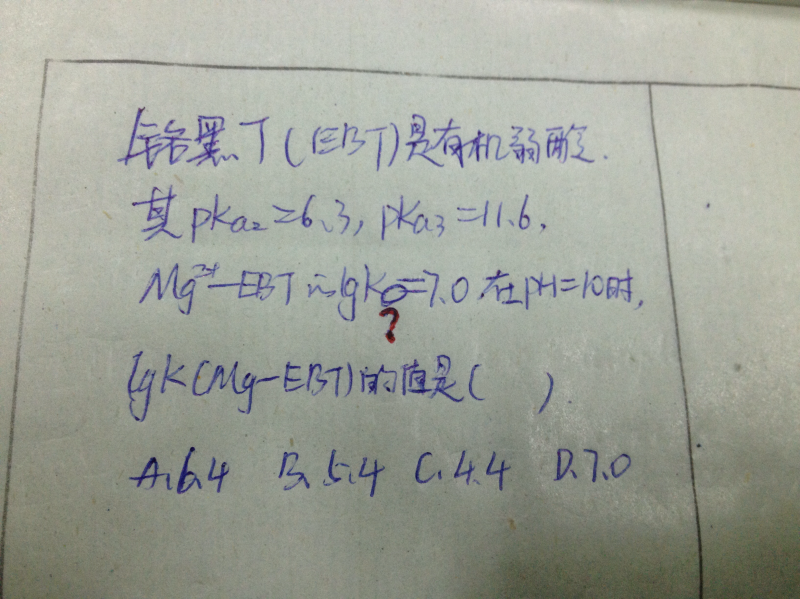 铬黑T(EBT)是有机弱酸.
其pKa2=6.3, pKa3=11.6,
Mg2+-EBT的lgK0=7.0 在pH=10时,
?
lgK(Mg-EBT)的值是( )
A.6.4 B.5.4 C.4.4 D.7.0